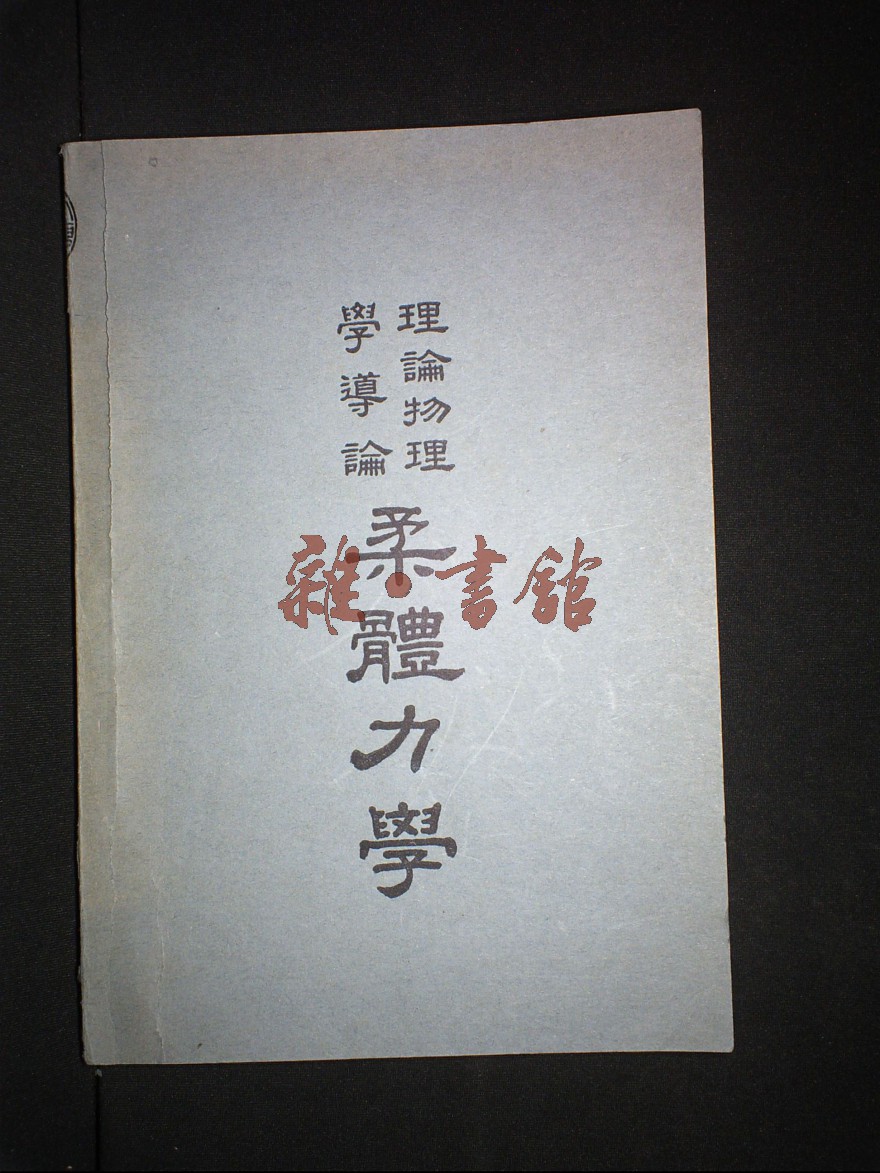 理論物理
學導論
柔體力學
雜·書館